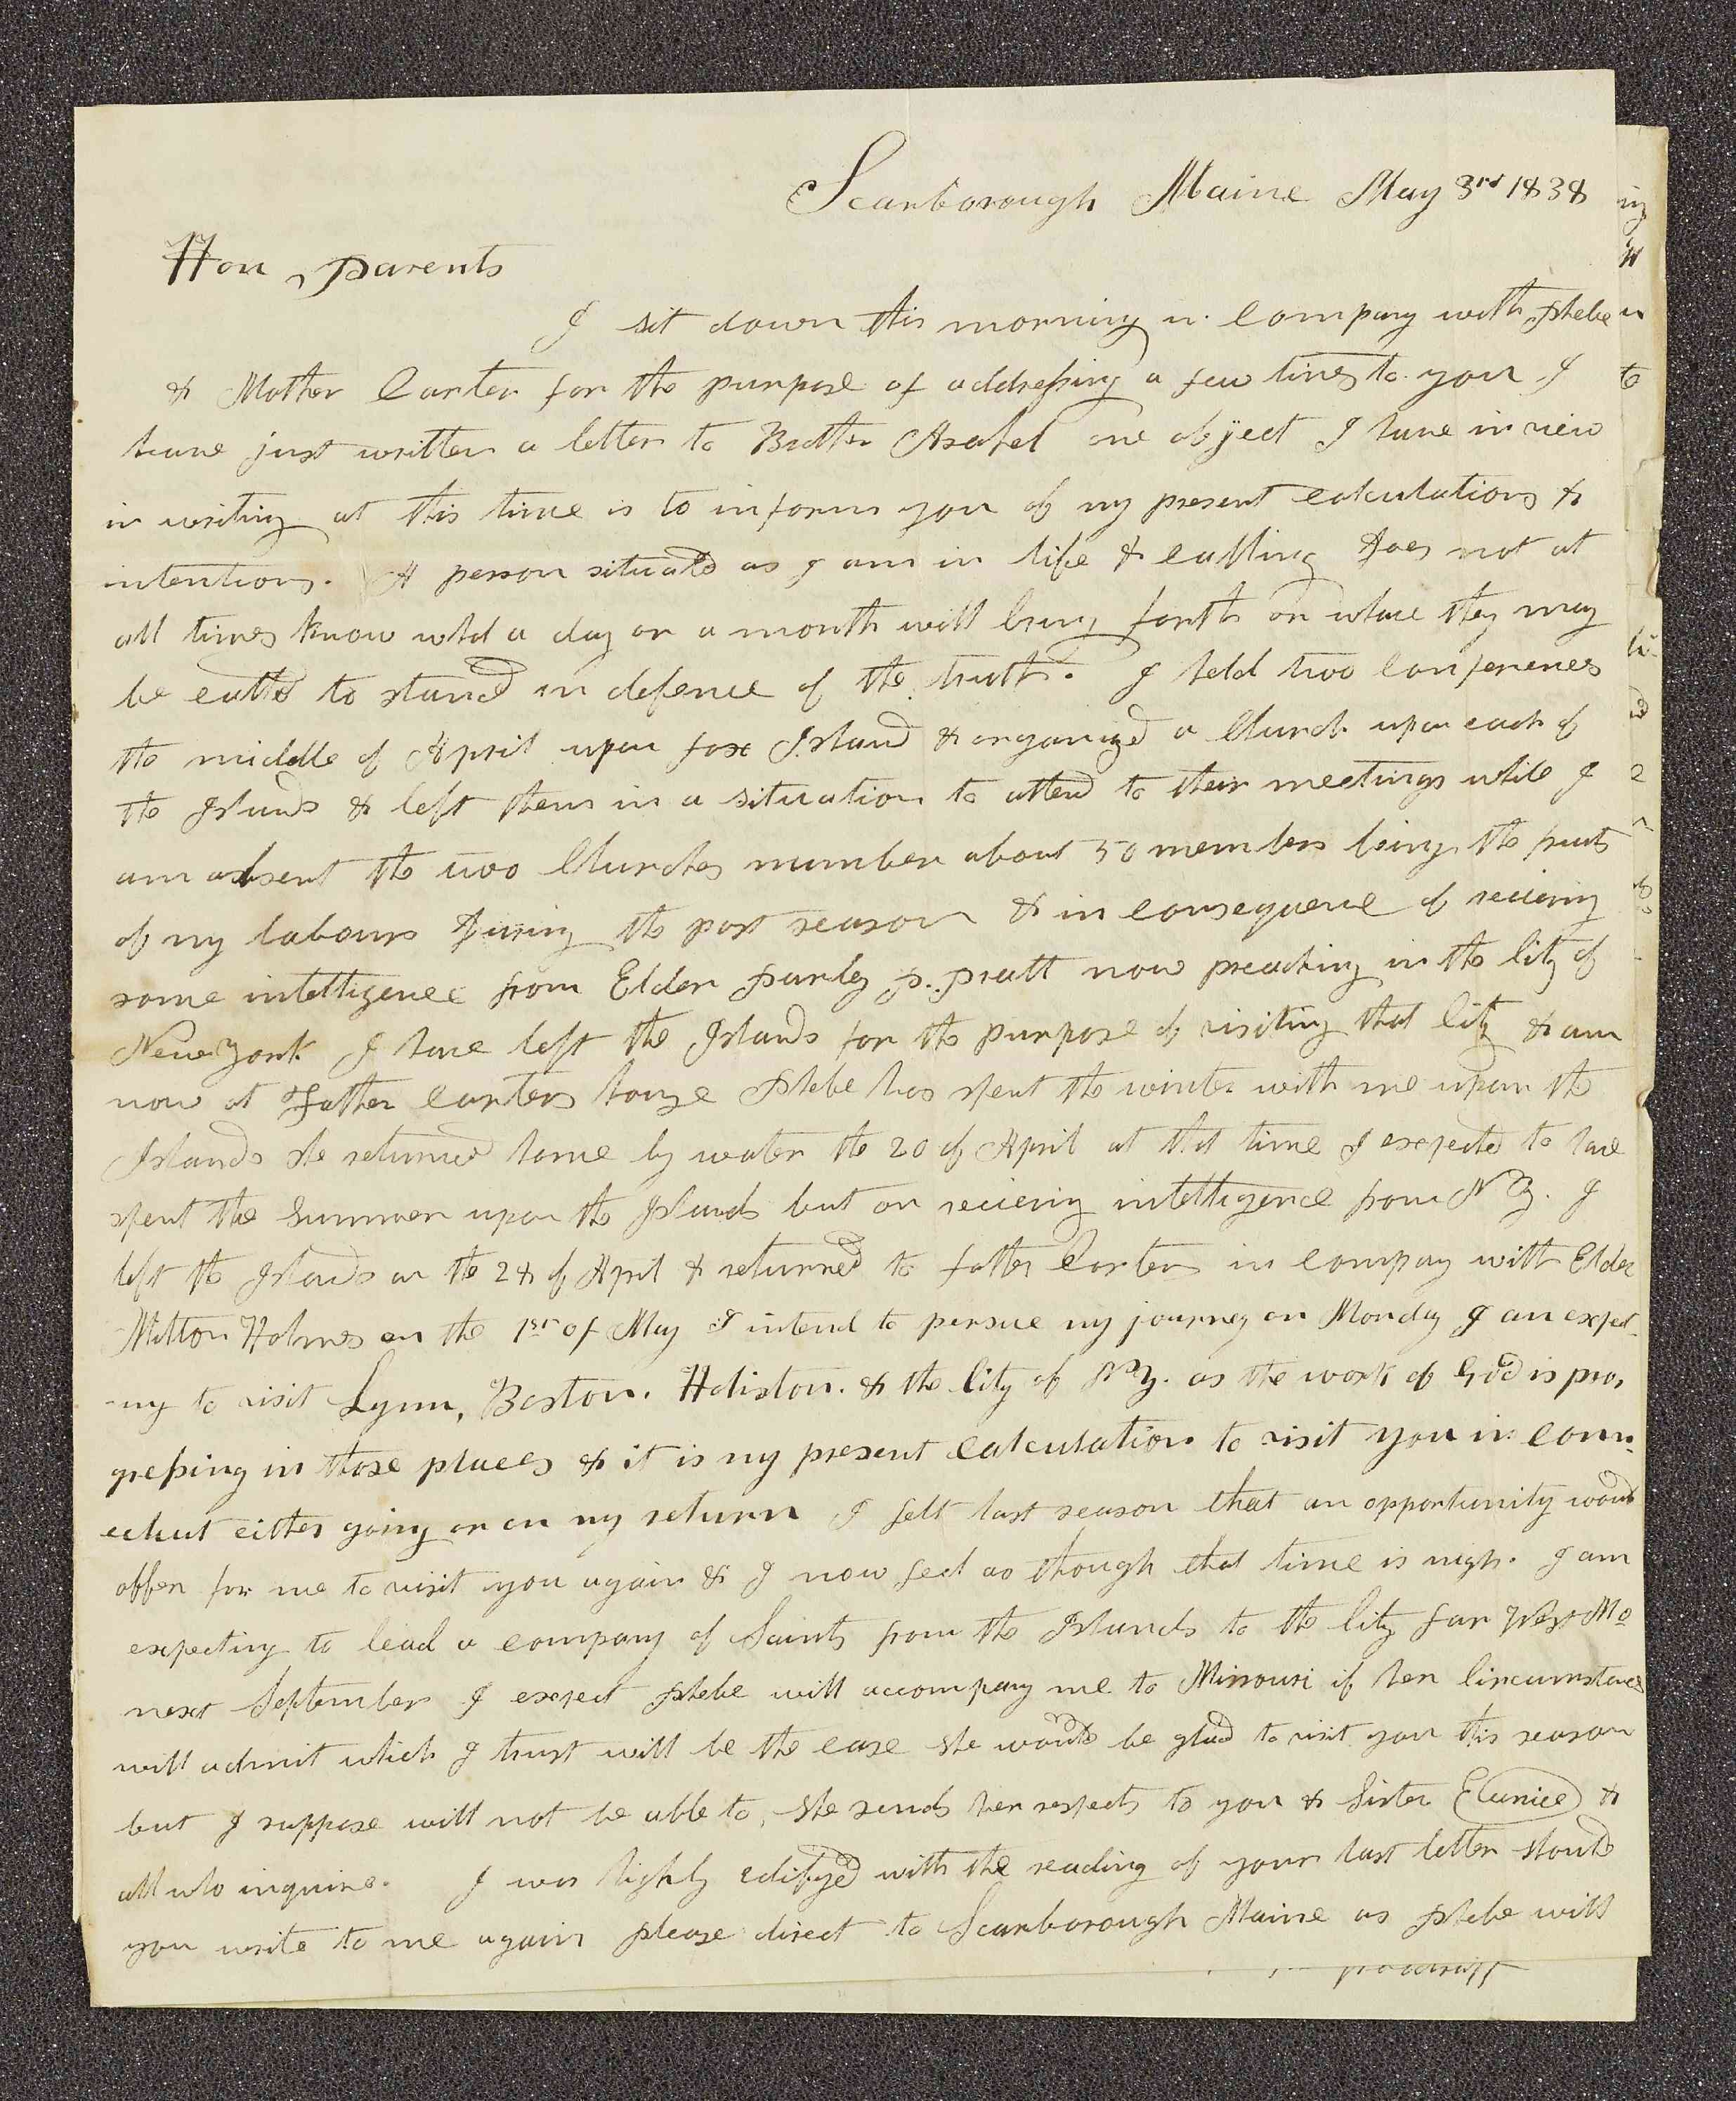 Scarborough Maine May 3rd 1838
Hon, Parents
I sit down this morning in company with Phebe
& Mother Carter for the purpose of addressing a few lines to you I
have just written a letter to Brother Asahel one object I have in view
in writing at this time is to inform you of my present calculations &
intentions. A person situated as I am in life & calling does not at
all times know what a day or a month will bring forth or whare they may
be called to stand in defence of the truth. I held two Conferences
the middle of April upon fox Island & organized a Church upon each of
the Islands & left them in a situation to attend to their meetings while I
am absent the two Churches number about 50 members being the fruits
of my labours During the past season & in consequence of recieving
some intelligence from Elder Parley P. Pratt now preaching in the City of
New York I have left the Islands for the purpose of visiting that City & am
now at Father Carters house Phebe has spent the winter with me upon the
Islands she returned home by water the 20 of April at that time I expected to have
spent the Summer upon the Islands but on recieving intelligence from N Y. I
left the Islands on the 28 of April & returned to father Carters in company with Elder
Milton Holmes on the 1st of May I intend to persue my journey on Monday I am expect-
-ing to visit Lynn, Boston. Holiston. & the City of N Y. as the work of God is pro,
gressing in those places & it is my present calculation to visit you in Conn-
ecticut either going or on my return I felt last season that an opportunity would
offer for me to visit you again & I now feel as though that time is nigh. I am
expecting to lead a company of Saints from the Islands to the City far West Mo
next September I expect Phebe will accompany me to Missouri if her Circumstances
will admit which I trust will be the case she would be glad to visit you this season
but I suppose will not be able to, she sends her respects to you & Sister Eunice &
all who inquire. I was highly edifyed with the reading of your last letter should
you write to me again please direct to Scarborough Maine as Phebe will